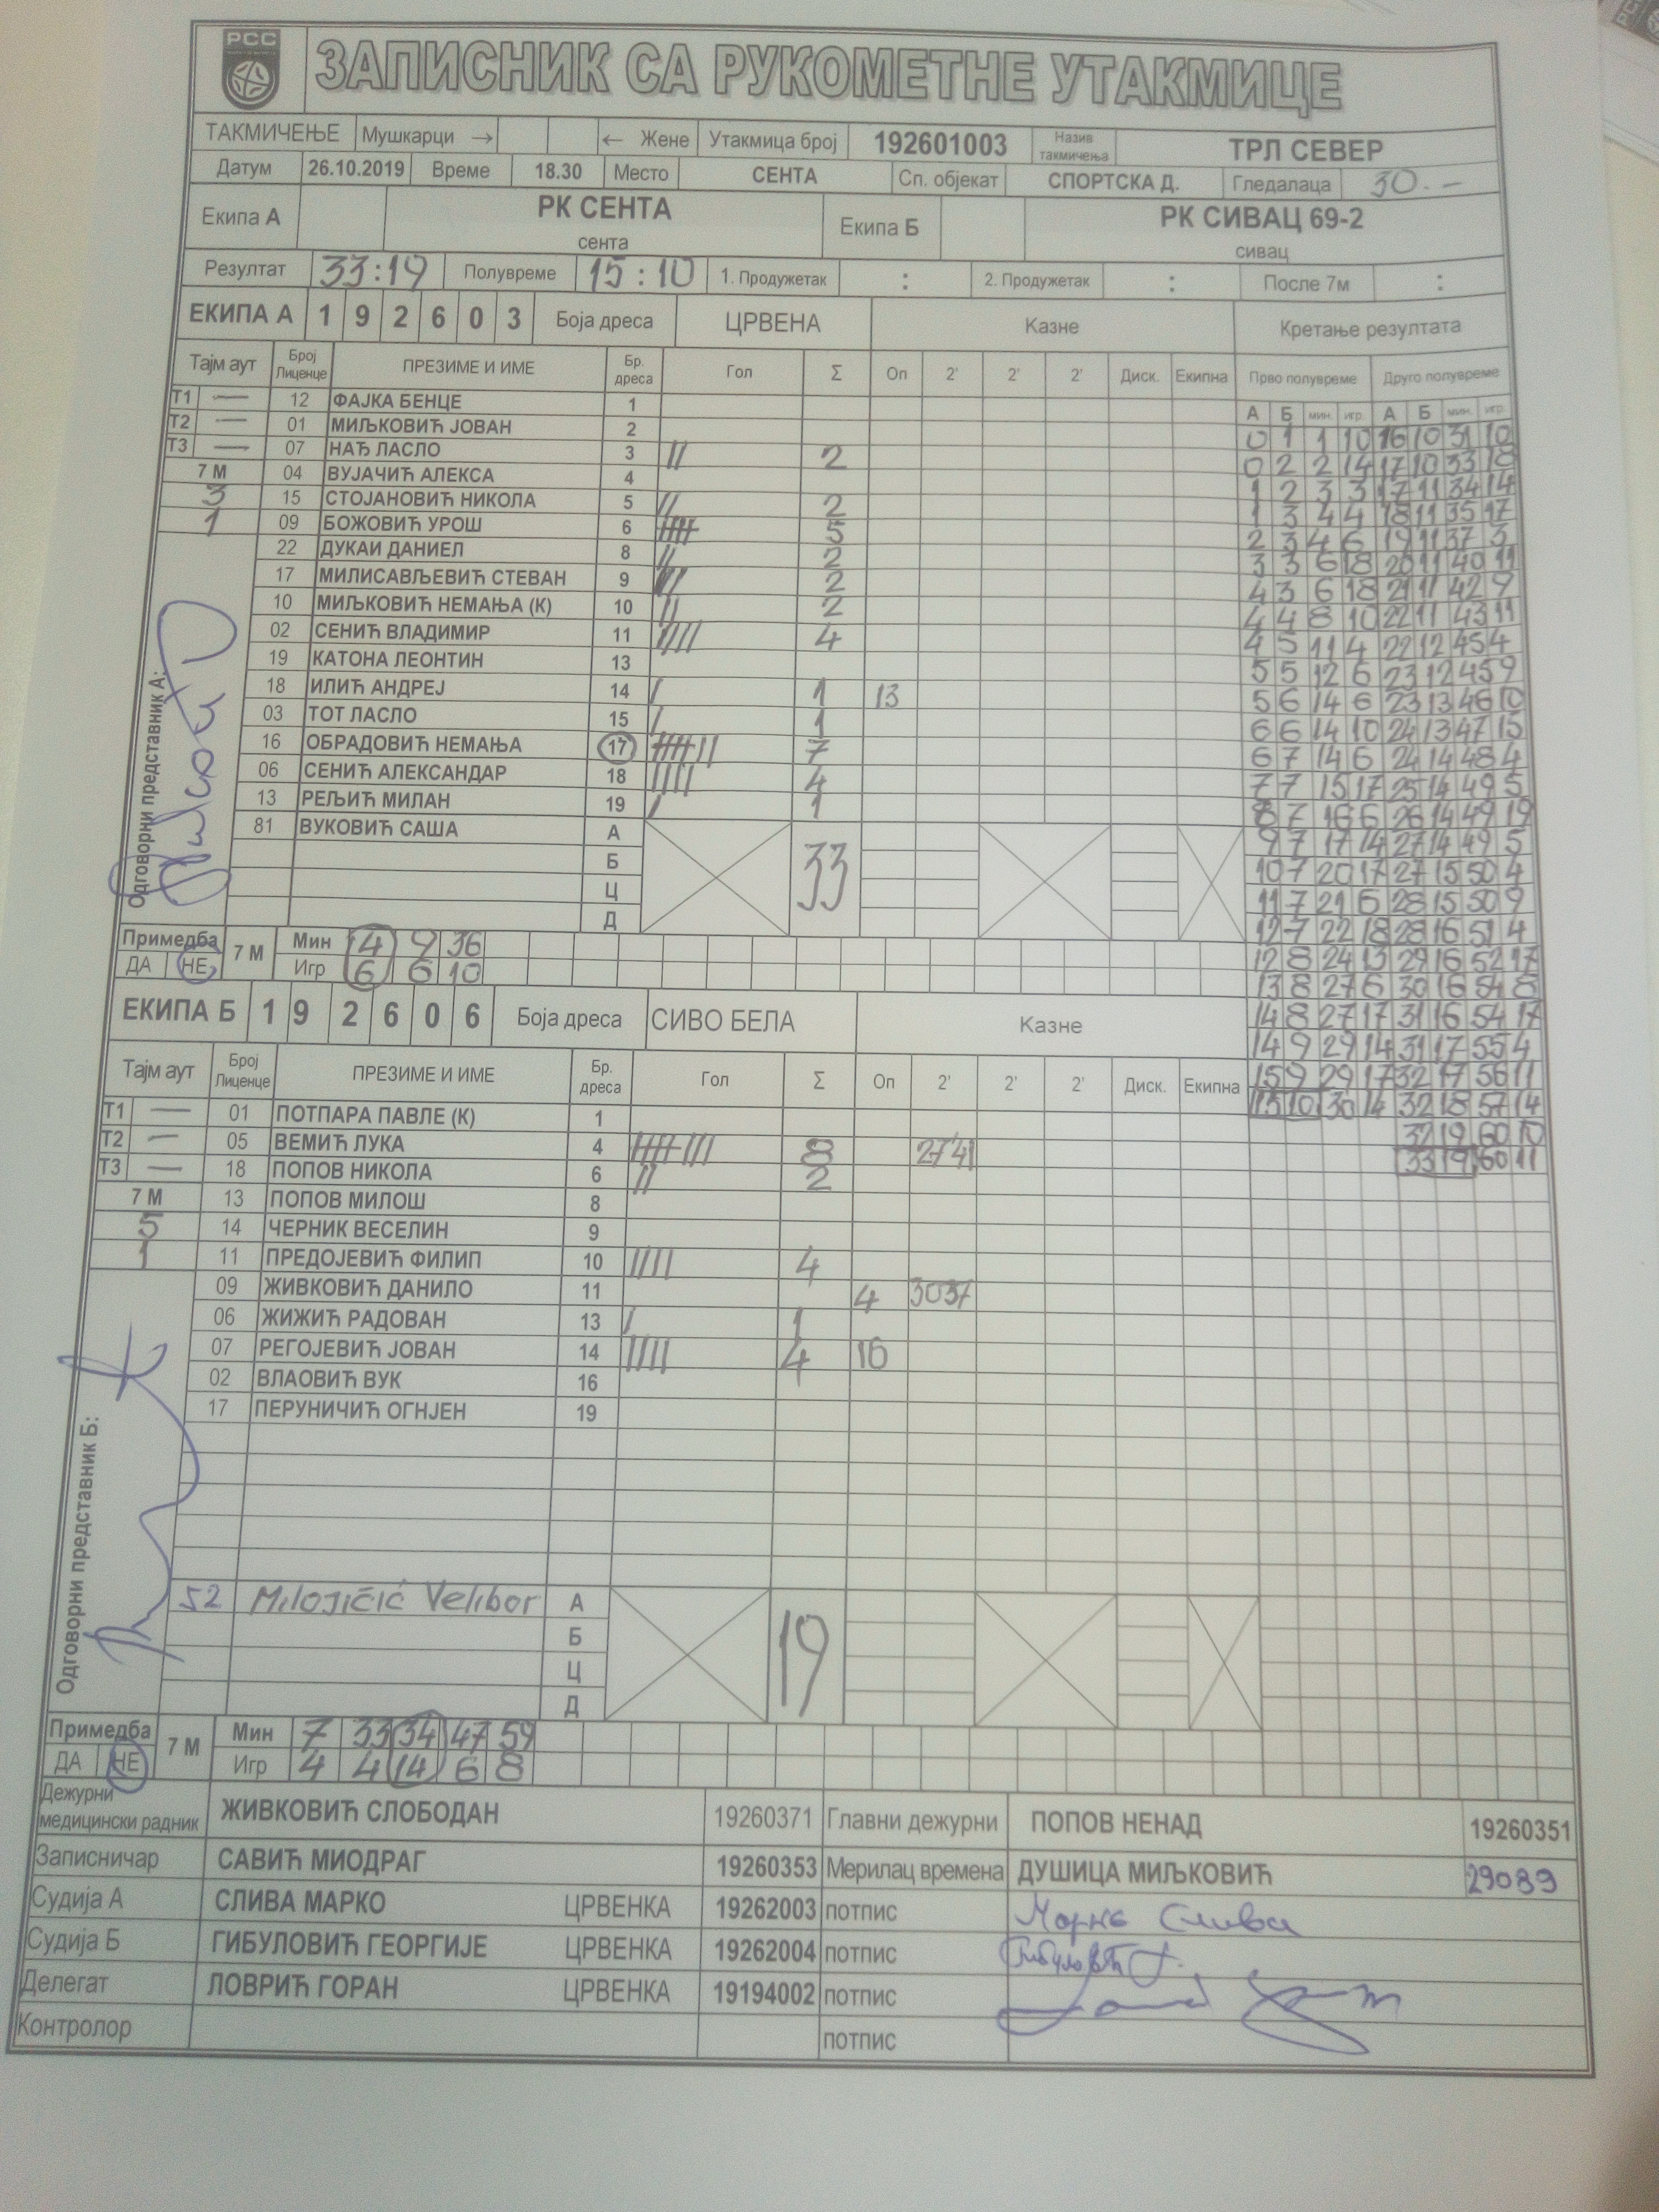 РСС
ЗАПИСНИК СА РУКОМЕТНЕ УТАКМИЦЕ
ТАКМИЧЕЊЕ Мушкарци → ← Жене Утакмица број 192601003 Назив такмичења ТРЛ СЕВЕР
Датум 26.10.2019 Време 18.30 Место СЕНТА Сп. објекат СПОРТСКА Д. Гледалаца 30.-
Екипа А РК СЕНТА сента Екипа Б РК СИВАЦ 69-2 сивац
Резултат 33:19 Полувреме 15:10 1. Продужетак : 2. Продужетак : После 7м :
ЕКИПА А 1 9 2 6 0 3 Боја дреса ЦРВЕНА Казне Кретање резултата
Тајм аут Број Лиценце ПРЕЗИМЕ И ИМЕ Бр. дреса Гол Σ Оп 2' 2' 2' Диск. Екипна Прво полувреме Друго полувреме
А Б мин. игр. А Б мин. игр.
Т1 — 12 ФАЈКА БЕНЦЕ 1
0 1 1 10 16 10 31 10
Т2 — 01 МИЉКОВИЋ ЈОВАН 2
0 2 2 14 17 10 33 18
Т3 — 07 НАЂ ЛАСЛО 3 // 2
1 2 3 3 17 11 34 14
7 М 04 ВУЈАЧИЋ АЛЕКСА 4
1 3 4 4 18 11 35 17
3 15 СТОЈАНОВИЋ НИКОЛА 5 // 2
2 3 4 6 19 11 37 3
1 09 БОЖОВИЋ УРОШ 6 5
3 3 6 18 20 11 40 11
22 ДУКАИ ДАНИЕЛ 8 // 2
4 3 6 18 21 11 42 9
17 МИЛИСАВЉЕВИЋ СТЕВАН 9 // 2
4 4 8 10 22 11 43 11
10 МИЉКОВИЋ НЕМАЊА (К) 10 // 2
4 5 11 4 22 12 45 4
02 СЕНИЋ ВЛАДИМИР 11 //// 4
5 5 12 6 23 12 45 9
19 КАТОНА ЛЕОНТИН 13
5 6 14 6 23 13 46 10
18 ИЛИЋ АНДРЕЈ 14 / 1 13
6 6 14 10 24 13 47 15
03 ТОТ ЛАСЛО 15 / 1
6 7 14 6 24 14 48 4
16 ОБРАДОВИЋ НЕМАЊА 17 7
7 7 15 17 25 14 49 5
06 СЕНИЋ АЛЕКСАНДАР 18 //// 4
8 7 16 6 26 14 49 19
13 РЕЉИЋ МИЛАН 19 / 1
9 7 17 14 27 14 49 5
81 ВУКОВИЋ САША А 33
10 7 20 17 27 15 50 4
Б
11 7 21 6 28 15 50 9
Ц
12 7 22 18 28 16 51 4
Д
Одговорни представник А:
12 8 24 13 29 16 52 17
Примедба 7 М Мин 14 9 36
13 8 27 6 30 16 54 8
ДА НЕ Игр 6 6 10
14 8 27 17 31 16 54 17
ЕКИПА Б 1 9 2 6 0 6 Боја дреса СИВО БЕЛА Казне
14 9 29 14 31 17 55 4
Тајм аут Број Лиценце ПРЕЗИМЕ И ИМЕ Бр. дреса Гол Σ Оп 2' 2' 2' Диск. Екипна
15 9 29 17 32 17 56 11
Т1 — 01 ПОТПАРА ПАВЛЕ (К) 1
15 10 30 14 32 18 57 14
Т2 — 05 ВЕМИЋ ЛУКА 4 8 27'41
32 19 60 10
Т3 — 18 ПОПОВ НИКОЛА 6 // 2
33 19 60 11
7 М 13 ПОПОВ МИЛОШ 8
5 14 ЧЕРНИК ВЕСЕЛИН 9
1 11 ПРЕДОЈЕВИЋ ФИЛИП 10 //// 4
09 ЖИВКОВИЋ ДАНИЛО 11 4 3037
06 ЖИЖИЋ РАДОВАН 13 / 1
07 РЕГОЈЕВИЋ ЈОВАН 14 //// 4 16
02 ВЛАОВИЋ ВУК 16
17 ПЕРУНИЧИЋ ОГЊЕН 19
Одговорни представник Б:
52 Milojičić Velibor А 19
Б
Ц
Д
Примедба 7 М Мин 7 33 34 47 59
ДА НЕ Игр 4 4 14 6 8
Дежурни медицински радник ЖИВКОВИЋ СЛОБОДАН 19260371 Главни дежурни ПОПОВ НЕНАД 19260351
Записничар САВИЋ МИОДРАГ 19260353 Мерилац времена ДУШИЦА МИЉКОВИЋ 29089
Судија А СЛИВА МАРКО ЦРВЕНКА 19262003 потпис Марко Слива
Судија Б ГИБУЛОВИЋ ГЕОРГИЈЕ ЦРВЕНКА 19262004 потпис
Делегат ЛОВРИЋ ГОРАН ЦРВЕНКА 19194002 потпис
Контролор потпис